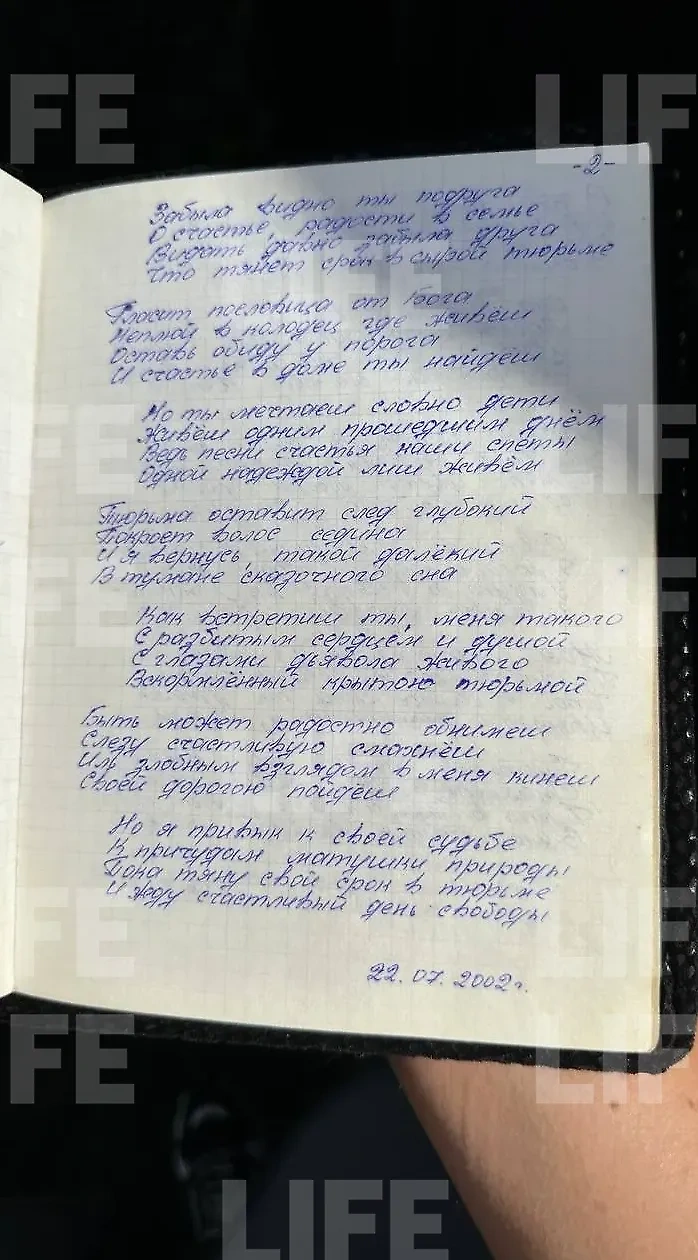 FE
LIF
-2-
Забыла видно ты подруга
О счастье, радости в семье
Видать давно забыла друга
Что тянет срок в сырой тюрьме
LIFE
Гласит пословица от Бога
Неплюй в колодец где живёш
Оставь обиду у порога
И счастье в доме ты найдёш
FE
LIF
Но ты мечтаеш словно дети
Живёш одним прошедшим днём
Ведь песни счастья наши спеты
Одной надеждой лиш живём
Тюрьма оставит след глубокий
Покроет волос седина
И я вернусь, такой далёкий
В тумане сказочного сна
FE
LIF
Как встретиш ты, меня такого
С разбитым сердцем и душой
С глазами дьявола живого
Вскормлённый крытою тюрьмой
Быть может радостно обнимеш
Слезу счастливую смахнёш
Иль злобным взглядом в меня кинеш
Своей дорогою пойдёш
LIFE
Но я привык к своей судьбе
К причудам матушки природы
Пока тяну свой срок в тюрьме
И жду счастливый день свободы
FE
LIF
22.07.2002г.
FE
LIF
LIFE